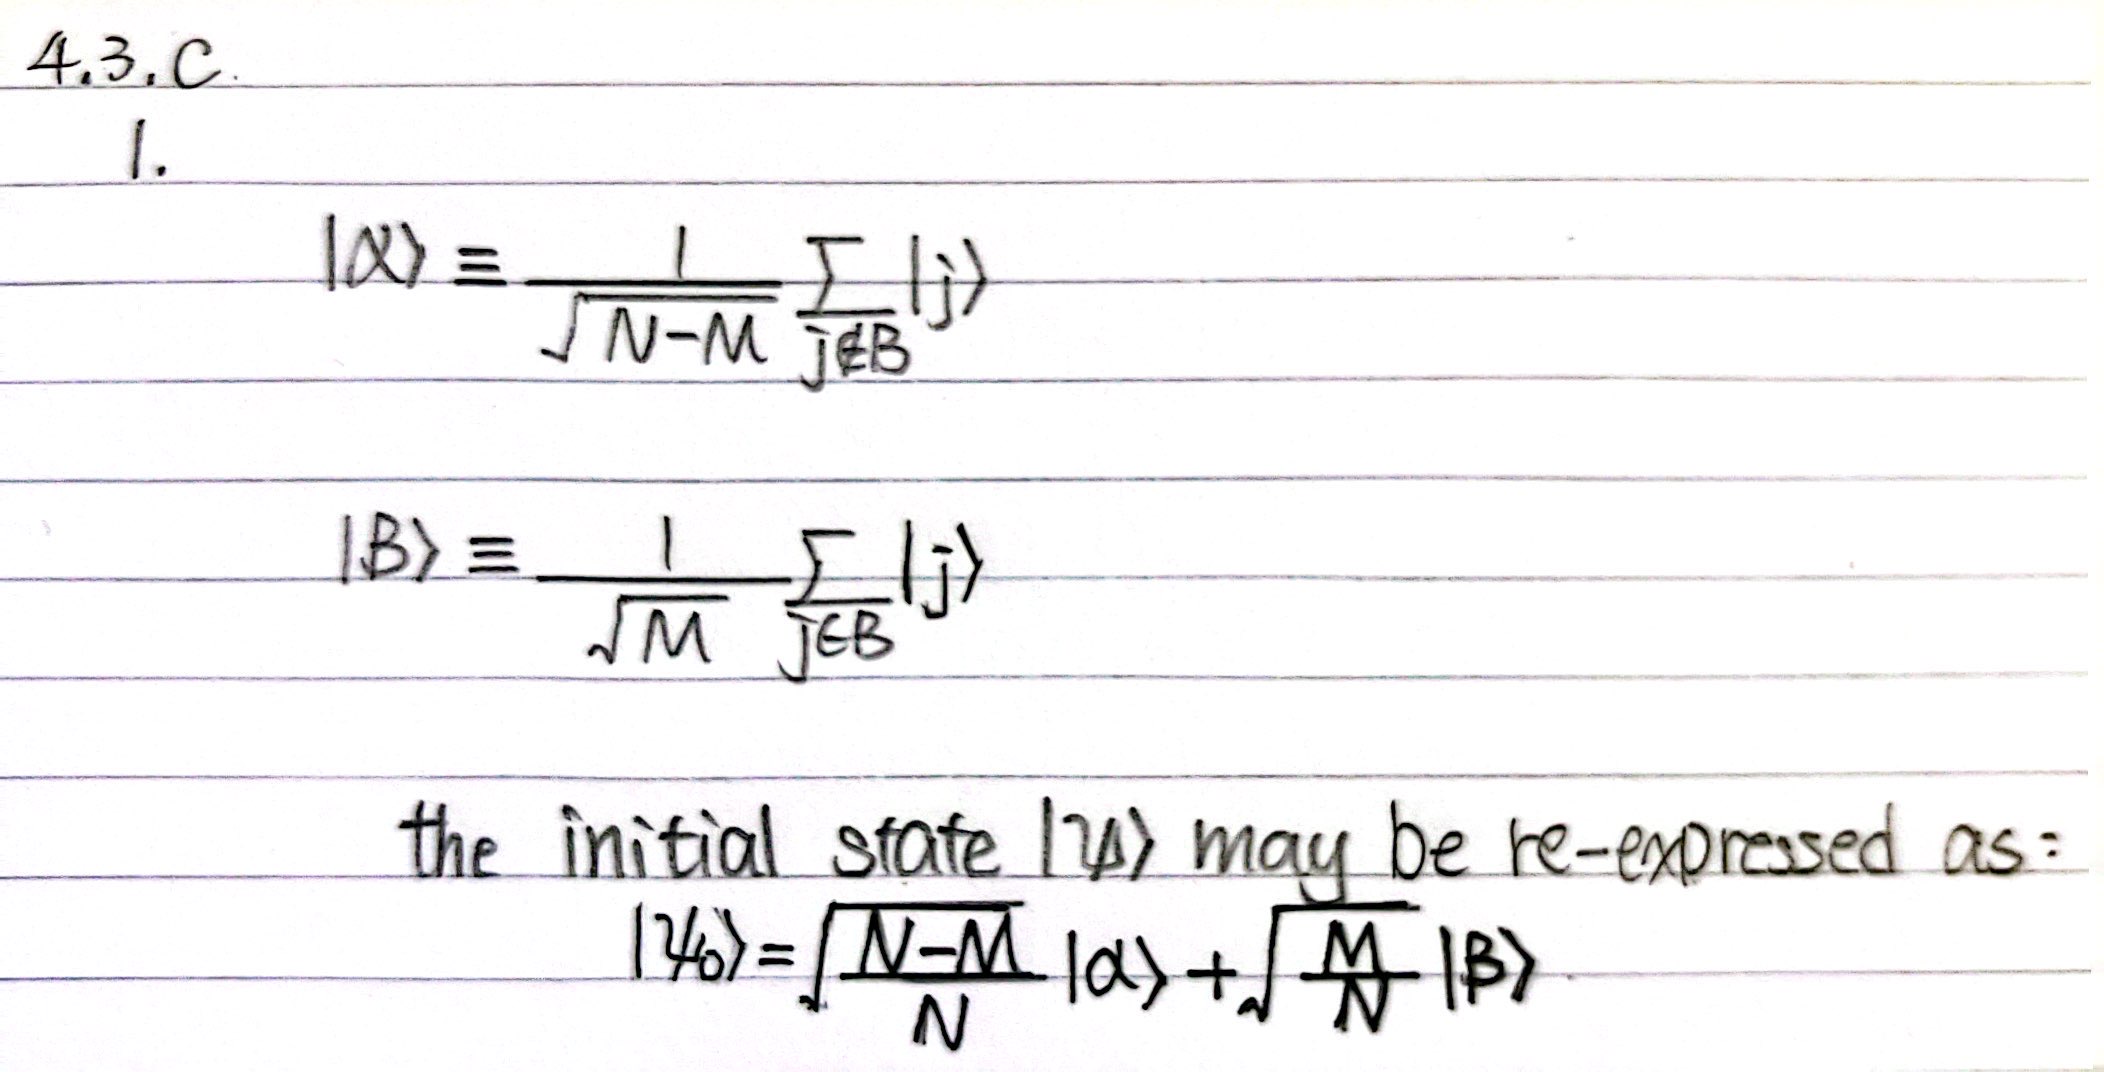 4.3.C.
1.
|α⟩ ≡ 1/√(N-M) ∑_{j∉B} |j⟩
|β⟩ ≡ 1/√M ∑_{j∈B} |j⟩
the initial state |ψ⟩ may be re-expressed as:
|ψ₀⟩ = √((N-M)/N) |α⟩ + √(M/N) |β⟩